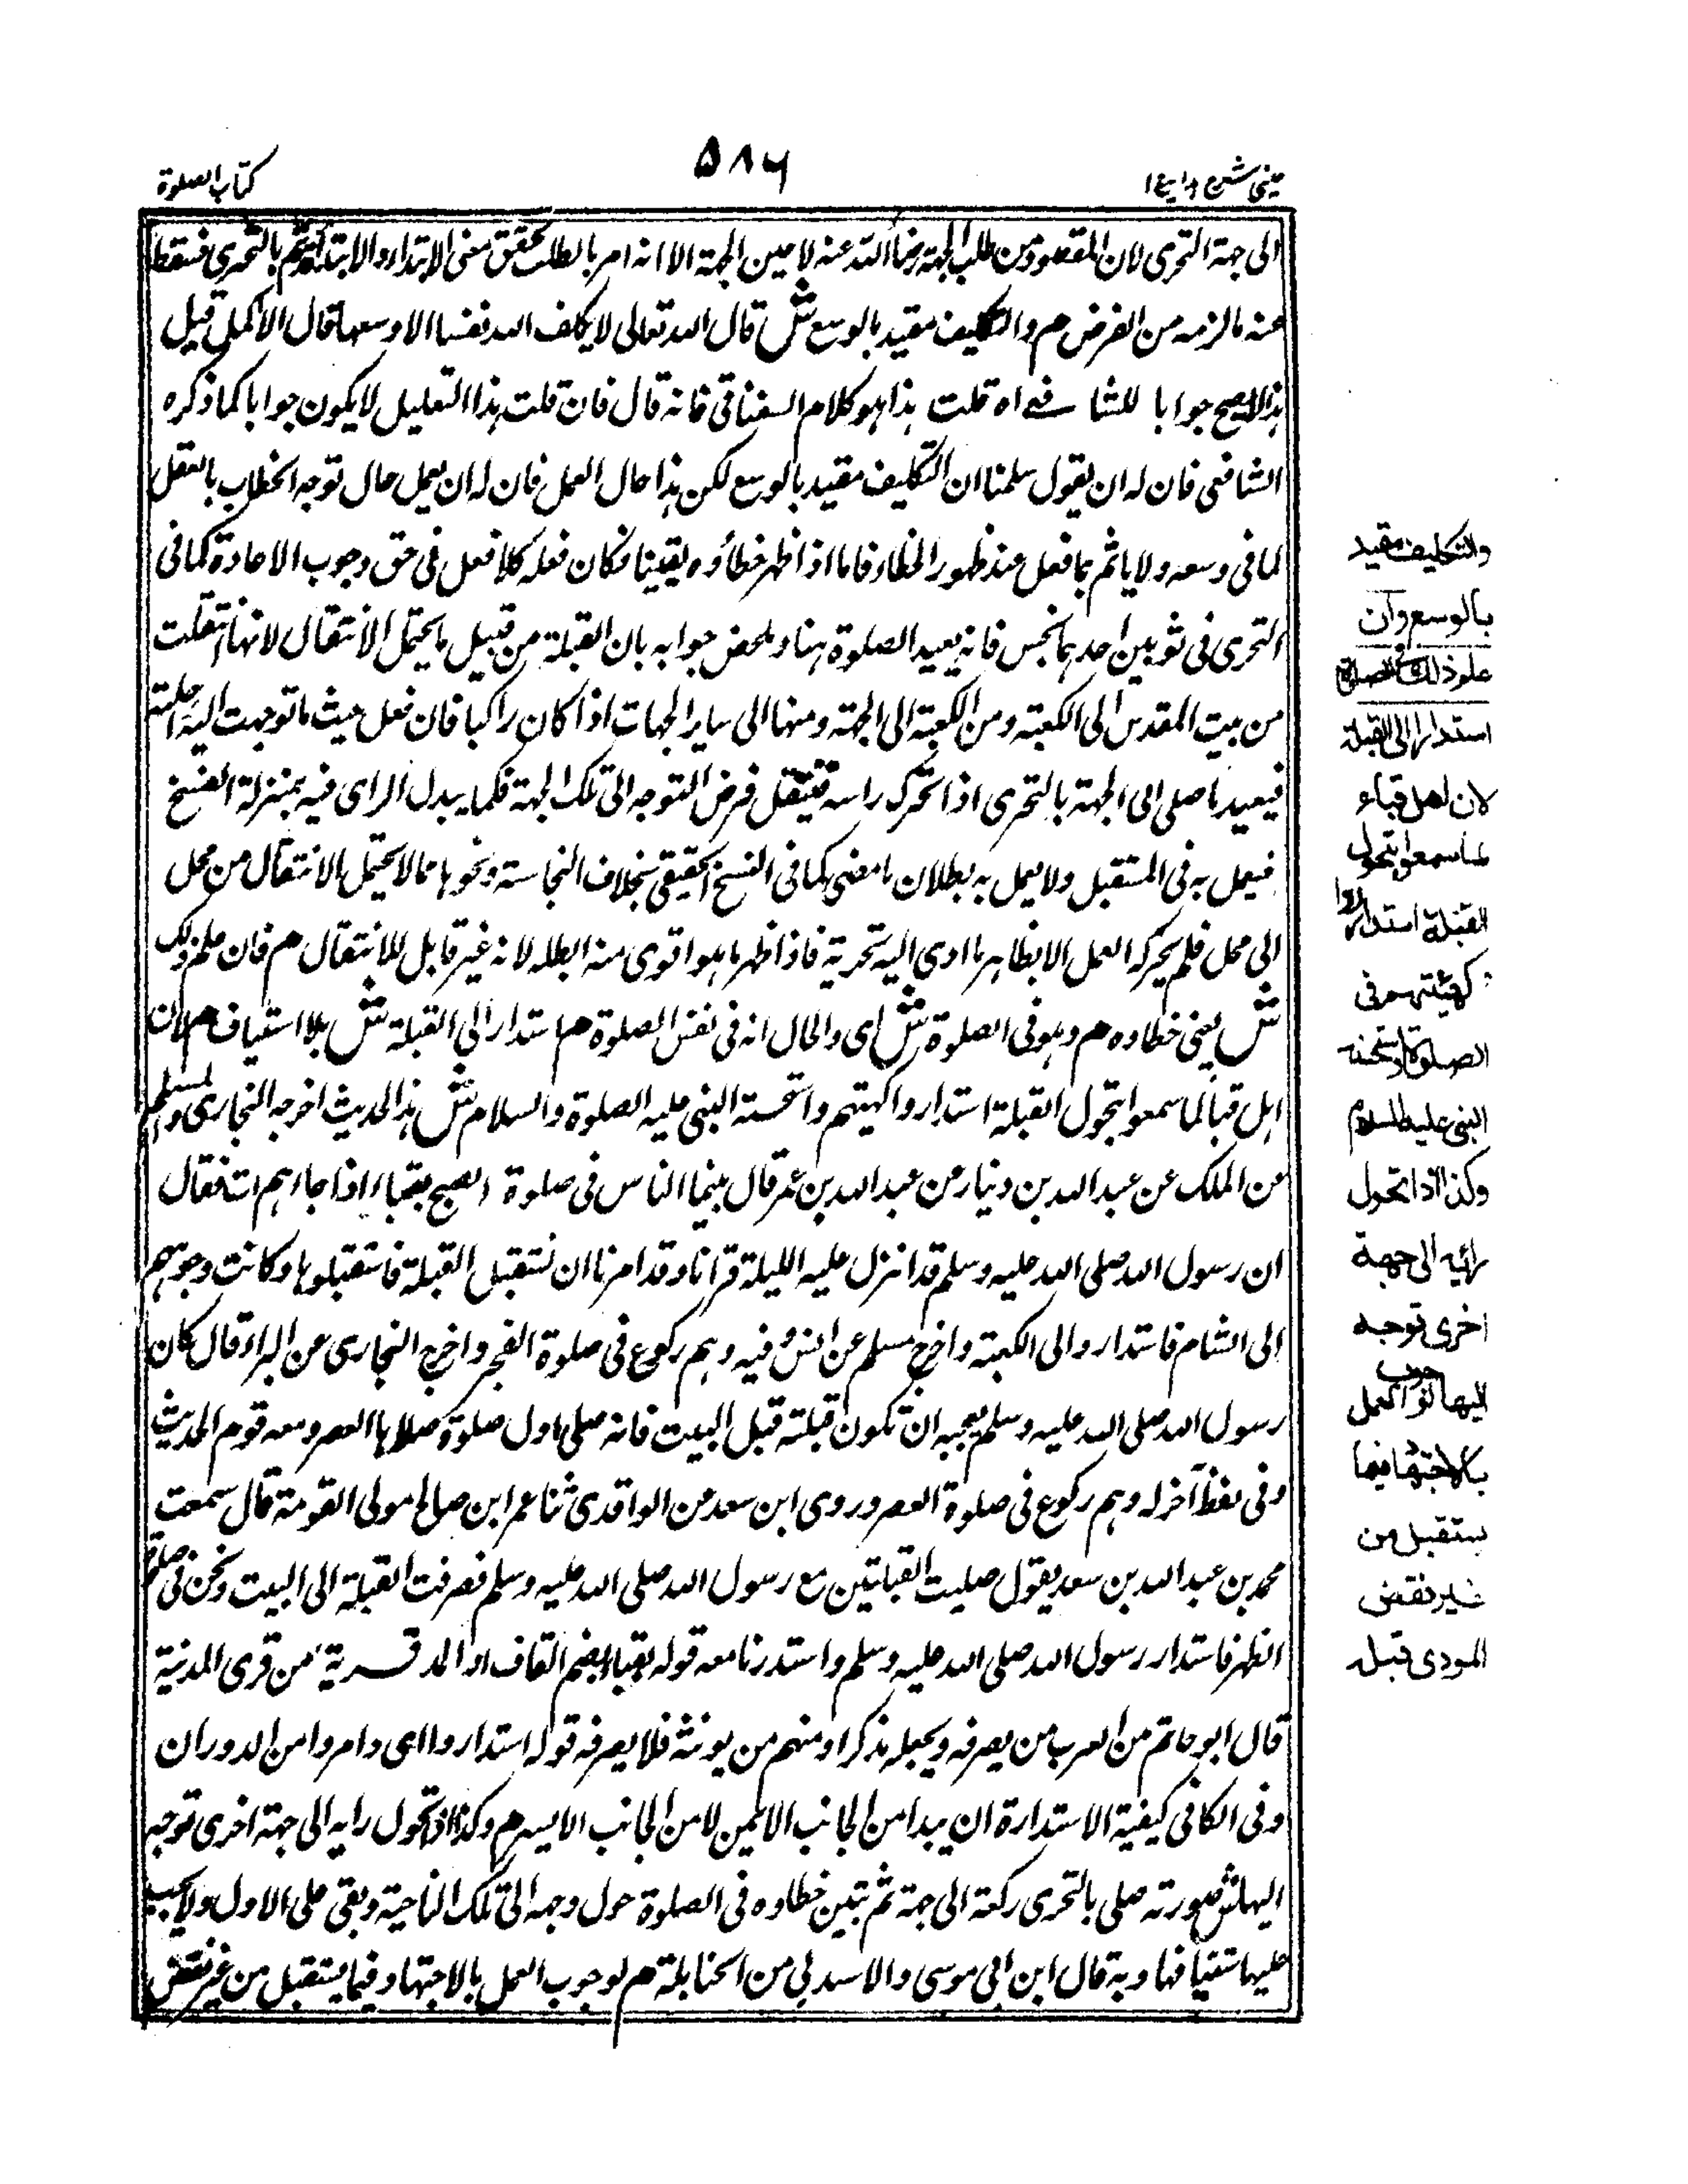 عینی شرح ہدایہ ج ۱
۵۸۶
کتاب الصلوة
الى جهة التحرى لان المقصود من طلب الجهة رضا الله عنه لا عين الجهة الا انه امر بالطلب لتحقق معنى الابتلاء والابتلاء قد تم بالتحرى فسقط
عنه ما لزمه من الفرض هم والتكليف مقيد بالوسع ش قال الله تعالى لا يكلف الله نفسا الا وسعها قال الاكمل قيل
هذا لا يصلح جوابا للشا فعى اه قلت هذا هو كلام السغناقى فانه قال فان قلت هذا التعليل لا يكون جوابا كما ذكره
الشافعى فان له ان يقول سلمنا ان التكليف مقيد بالوسع لكن هذا حال العمل فان له ان يعمل حال توجه الخطاب بالعقل
لما فى وسعه ولا ياثم بما فعل عند ظهور الخطاء فاما اذا ظهر خطأوه يقينا فكان فعله كلا فعل فى حق وجوب الاعادة كما فى
التحرى فى ثوبين احدهما نجس فانه يعيد الصلوة هنا وملخص جوابه بان القبلة من قبيل ما يحتمل الانتقال لانها انتقلت
من بيت المقدس الى الكعبة ومن الكعبة الى الجهة ومنها الى ساير الجهات اذا كان راكبا فان فعل حيث ما توجهت اليه راحلته
فيعيد ما صلى الى الجهة بالتحرى اذا تحرك راسه فتنتقل فرض التوجه الى تلك الجهة فكما يبدل الراى فيه بمنزلة الفسخ
فيعمل به فى المستقبل ولا يعمل به بطلان ما مضى كما فى الفسخ الحقيقى بخلاف النجاسة ونحوها مما لا يحتمل الانتقال من محل
الى محل فلم يحركه العمل الا بظاهر ما ادى اليه تحريه فاذا ظهر ما هو اقوى منه ابطله لانه غير قابل للانتقال هم فان علم ذلك
ش يعنى خطاوه هم وهو فى الصلوة ش اى والحال انه فى نفس الصلوة هم استدار الى القبلة ش بلا استيناف هم لان
اهل قبا لما سمعوا بتحول القبلة استداروا كهيئتهم واستحسنه النبى عليه الصلوة والسلام ش هذا الحديث اخرجه البخارى ومسلم
عن الملك عن عبد الله بن دينار عن عبد الله بن عمر قال بينما الناس فى صلوة الصبح بقباء اذا جاءهم ات فقال
ان رسول الله صلى الله عليه وسلم قد انزل عليه الليلة قرانا وقد امرنا ان نستقبل القبلة فاستقبلوها وكانت وجوههم
الى الشام فاستداروا الى الكعبة واخرج مسلم عن انس وفيه وهم ركوع فى صلوة الفجر واخرج البخارى عن البراء قال كان
رسول الله صلى الله عليه وسلم يعجبه ان تكون قبلته قبل البيت فانه صلى اول صلوة صلاها العصر ومعه قوم الحديث
وفى لفظ آخر له وهم ركوع فى صلوة العصر وروى ابن سعد عن الواقدى ثنا عمر ابن صالح مولى القومة قال سمعت
محمد بن عبد الله بن سعد يقول صليت القبلتين مع رسول الله صلى الله عليه وسلم فصرفت القبلة الى البيت ونحن فى صلوة
الظهر فاستدار رسول الله صلى الله عليه وسلم واستدرنا معه قوله بقباء بضم القاف او المد قرية من قرى المدينة
قال ابو حاتم من العرب من يصرفه ويجعله مذكرا ومنهم من يونثه فلا يصرفه قوله استداروا اى دامروا من الدوران
وفى الكافى كيفية الاستدارة ان يبدا من الجانب الايمن لا من الجانب الايسر هم وكذا اذا تحول رايه الى جهة اخرى توجه
اليها ش صورته صلى بالتحرى ركعة الى جهة ثم تبين خطاوه فى الصلوة حول وجهه الى تلك الناحية وبقى على الاول ولا يجب
عليه استينافها وبه قال ابن ابى موسى والاسدى من الحنابلة هم لوجوب العمل بالاجتهاد فيما يستقبل من غير نقض
والتكليف مقيد
بالوسع وان
علم ذلك فى الصلوة
استدار الى القبلة
لان اهل قباء
لما سمعوا بتحول
القبلة استداروا
كهيئتهم فى
الصلوة واستحسنه
النبى عليه السلام
وكذا اذا تحول
رائيه الى جهة
اخرى توجه
اليها لوجوب العمل
بالاجتهاد فيما
يستقبل من
غير نقض
المودى قبله